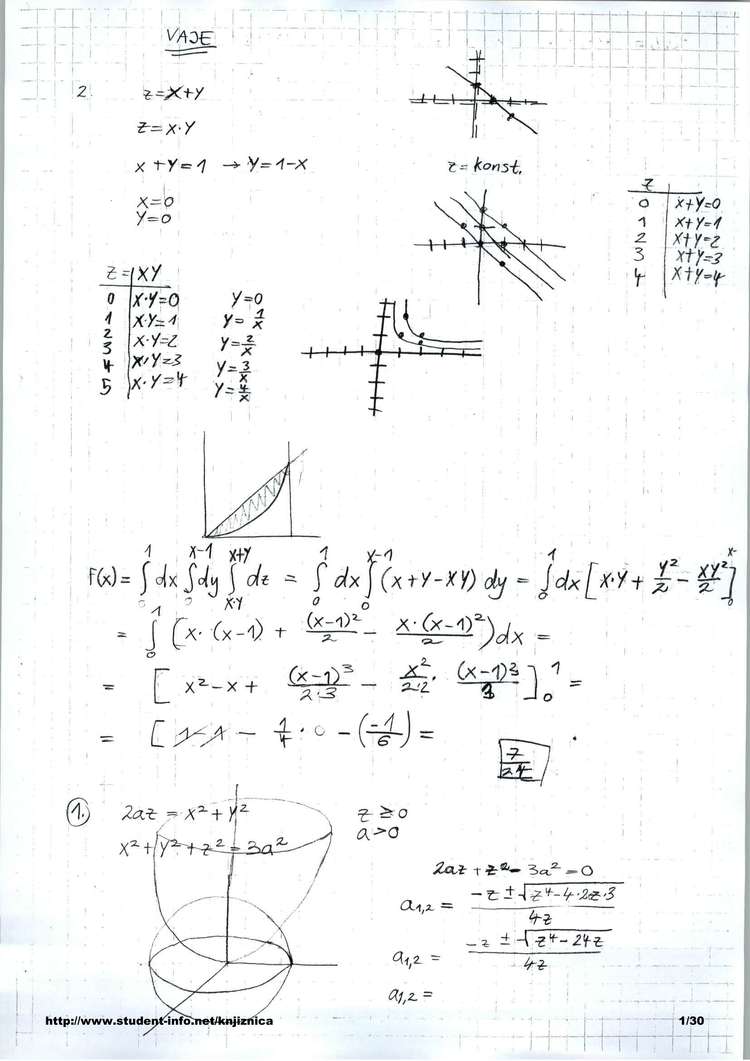 VAJE
2. z = x+y
z = x·y
x + y = 1 → y = 1-x
z = konst.
x = 0
y = 0
z
0 x+y=0
1 x+y=1
2 x+y=2
3 x+y=3
4 x+y=4
z = xy
0 x·y=0 y=0
1 x·y=1 y= 1/x
2 x·y=2 y= 2/x
3
4 x·y=3 y= 3/x
5 x·y=4 y= 4/x
F(x) = ∫₀¹ dx ∫₀^(x-1) dy ∫_(x·y)^(x+y) dz = ∫₀¹ dx ∫₀^(x-1) (x+y-xy) dy = ∫₀¹ dx [x·y + y²/2 - xy²/2]₀
= ∫₀¹ (x·(x-1) + (x-1)²/2 - x·(x-1)²/2) dx =
= [x² - x + (x-1)³/2·3 - x²/2·2 · (x-1)³/3]₀¹ =
= [1-1 - 1/4 · 0 - (-1/6) =
7/24
1. 2az = x² + y² z ≥ 0
x² + y² + z² = 3a² a > 0
2az + z² - 3a² = 0
a₁,₂ = (-z ± √(z⁴ - 4·2z·3))/4z
a₁,₂ = (-z ± √(z⁴ - 24z))/4z
a₁,₂ =
http://www.student-info.net/knjiznica 1/30